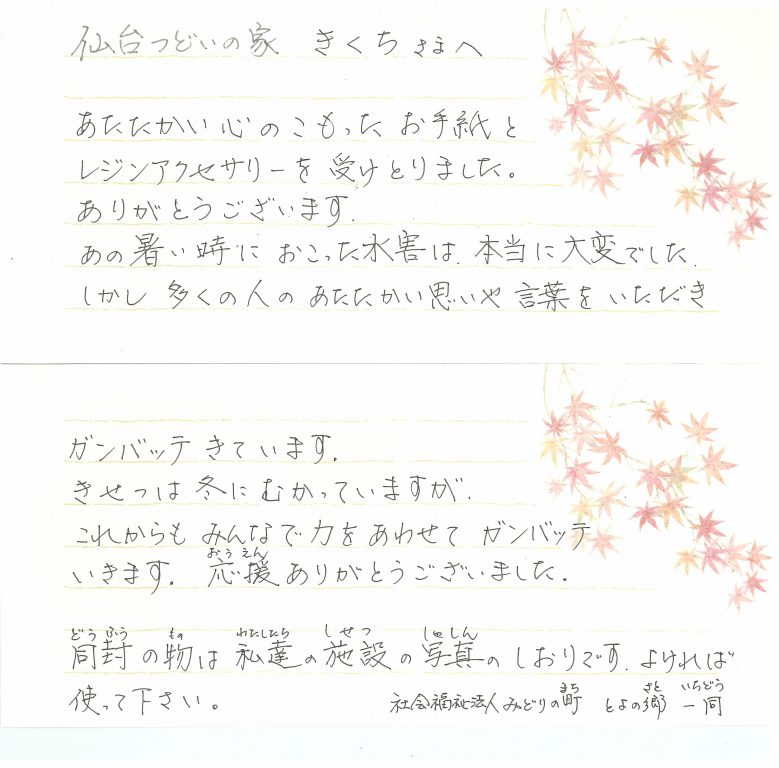 仙台つどいの家 きくち さまへ
あたたかい心のこもった お手紙と
レジンアクセサリーを 受けとりました。
ありがとうございます.
あの暑い時に おこった水害は. 本当に大変でした.
しかし 多くの人の あたたかい思いや 言葉を いただき
ガンバッテ きています.
きせつは 冬に むかっていますが.
これからも みんなで 力を あわせて ガンバッテ
おうえん
いきます. 応援 ありがとうございました.
どうふう もの わたしたち しせつ しゃしん
同封の物は 私達の施設の写真の しおりです. よければ
使って下さい。
まち さと いちどう
社会福祉法人 みどりの町 とよの郷 一同